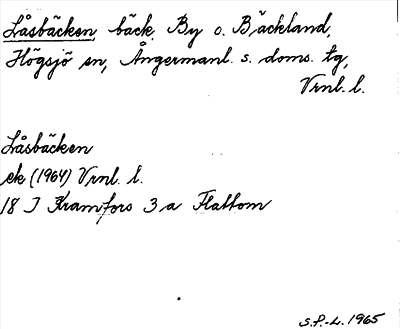 Låsbäcken, bäck. By o. Bäckland,
Högsjö sn, Ångermanl. s. doms. tg,
Vrnl. l.
Låsbäcken
ek (1964) Vrnl. l.
18 J Kramfors 3 a Flattom
S.P.-L. 1965